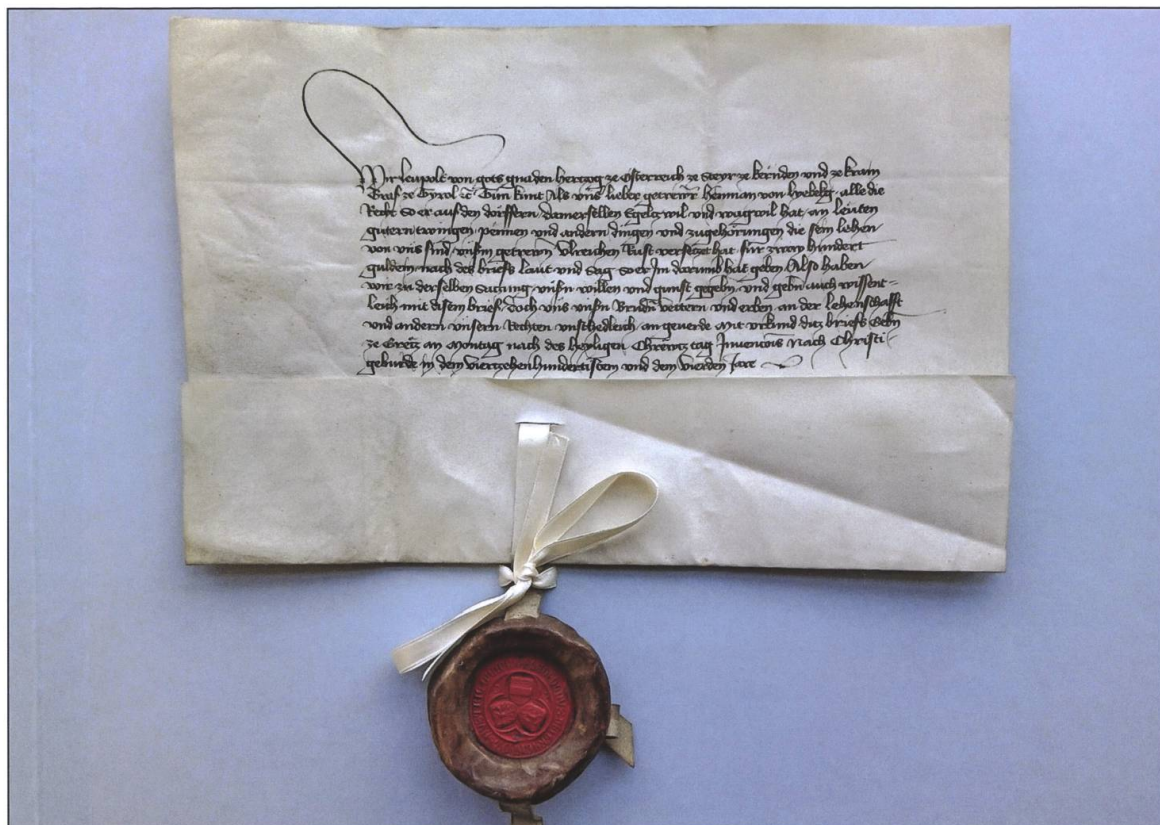 Wir leupolt von gots gnaden hertzog ze Osterreich ze Steyr ze kernden und ze krain
Graf ze Tyrol etc Tun kunt Als uns lieber getrewr henman von alle die
Recht so er auf den dörffern damersellen Egeltzwil und wagwil hat an leuten
gütern twingen pennen und andern dingen und zugehörungen die sein lehen
von uns sind unserm getrewn Ulreichen Rust versetzet hat für zway hundert
guldein nach des briefs laut und sag so er Im darumb hat geben Also haben
wir zu derselben satzung unsern willen und gunst gegeben und geben auch wissent-
leich mit disem brief doch uns unsern Brüdern vettern und erben an der lehenschafft
und andern unsern Rechten unschedleich an geverde Mit urkund ditz briefs Gebn
ze Gretz an Montag nach des heyligen Chrewtz tag Invencionis Nach Christi
geburde in dem viertzehenhundertistem und dem vierden Jare